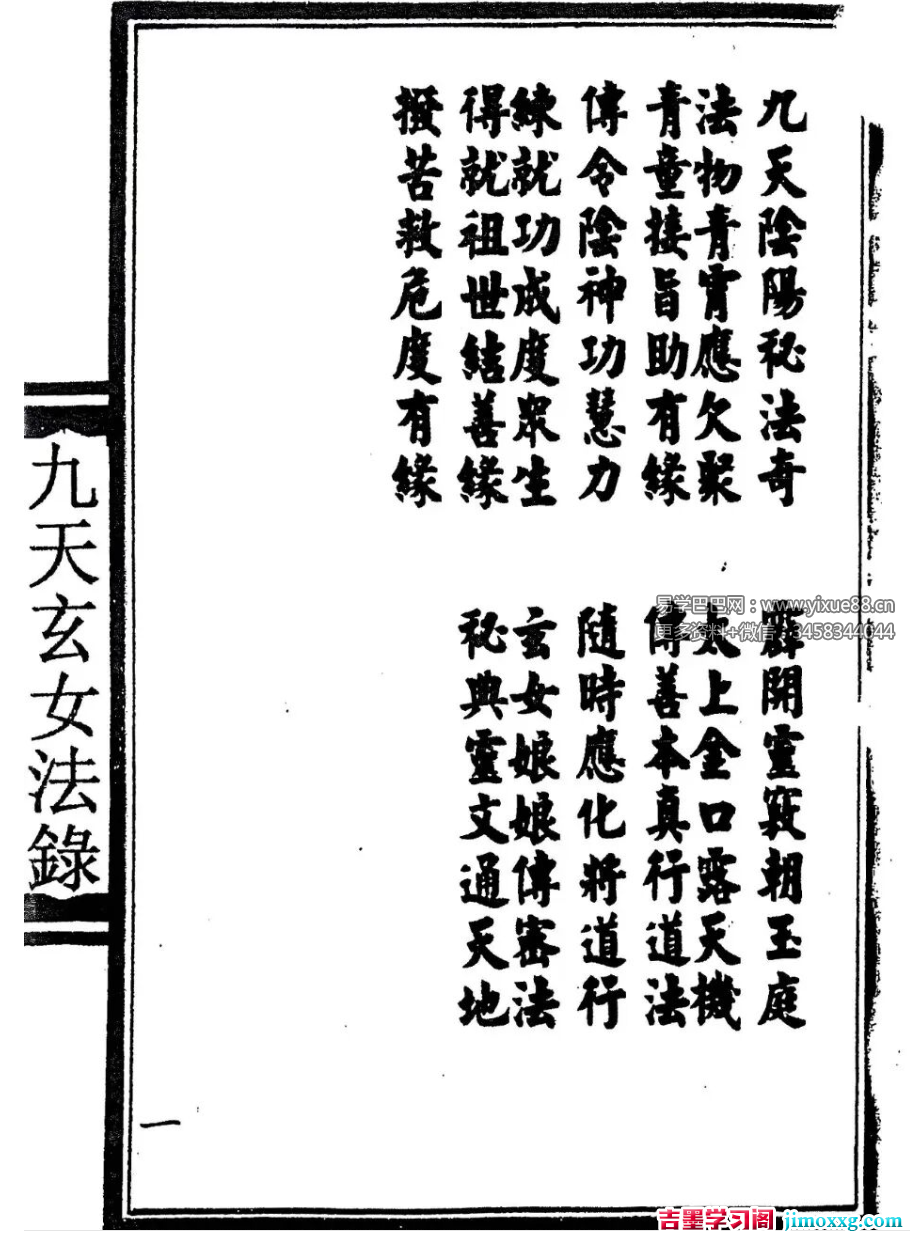 九天陰陽秘法奇
霹開靈竅朝玉庭
法物青霄應欠聚
太上金口露天機
青童接旨助有緣
傳善本真行道法
傳令陰神功慧力
隨時應化將道行
練就功成度眾生
玄女娘娘傳密法
得就祖世結善緣
秘典靈文通天地
撥苦救危度有緣
九天玄女法錄
一
易学巴巴网:www.yixue88.cn
更多资料+微信:3458344044
吉墨学习阁 jimoxxg.com